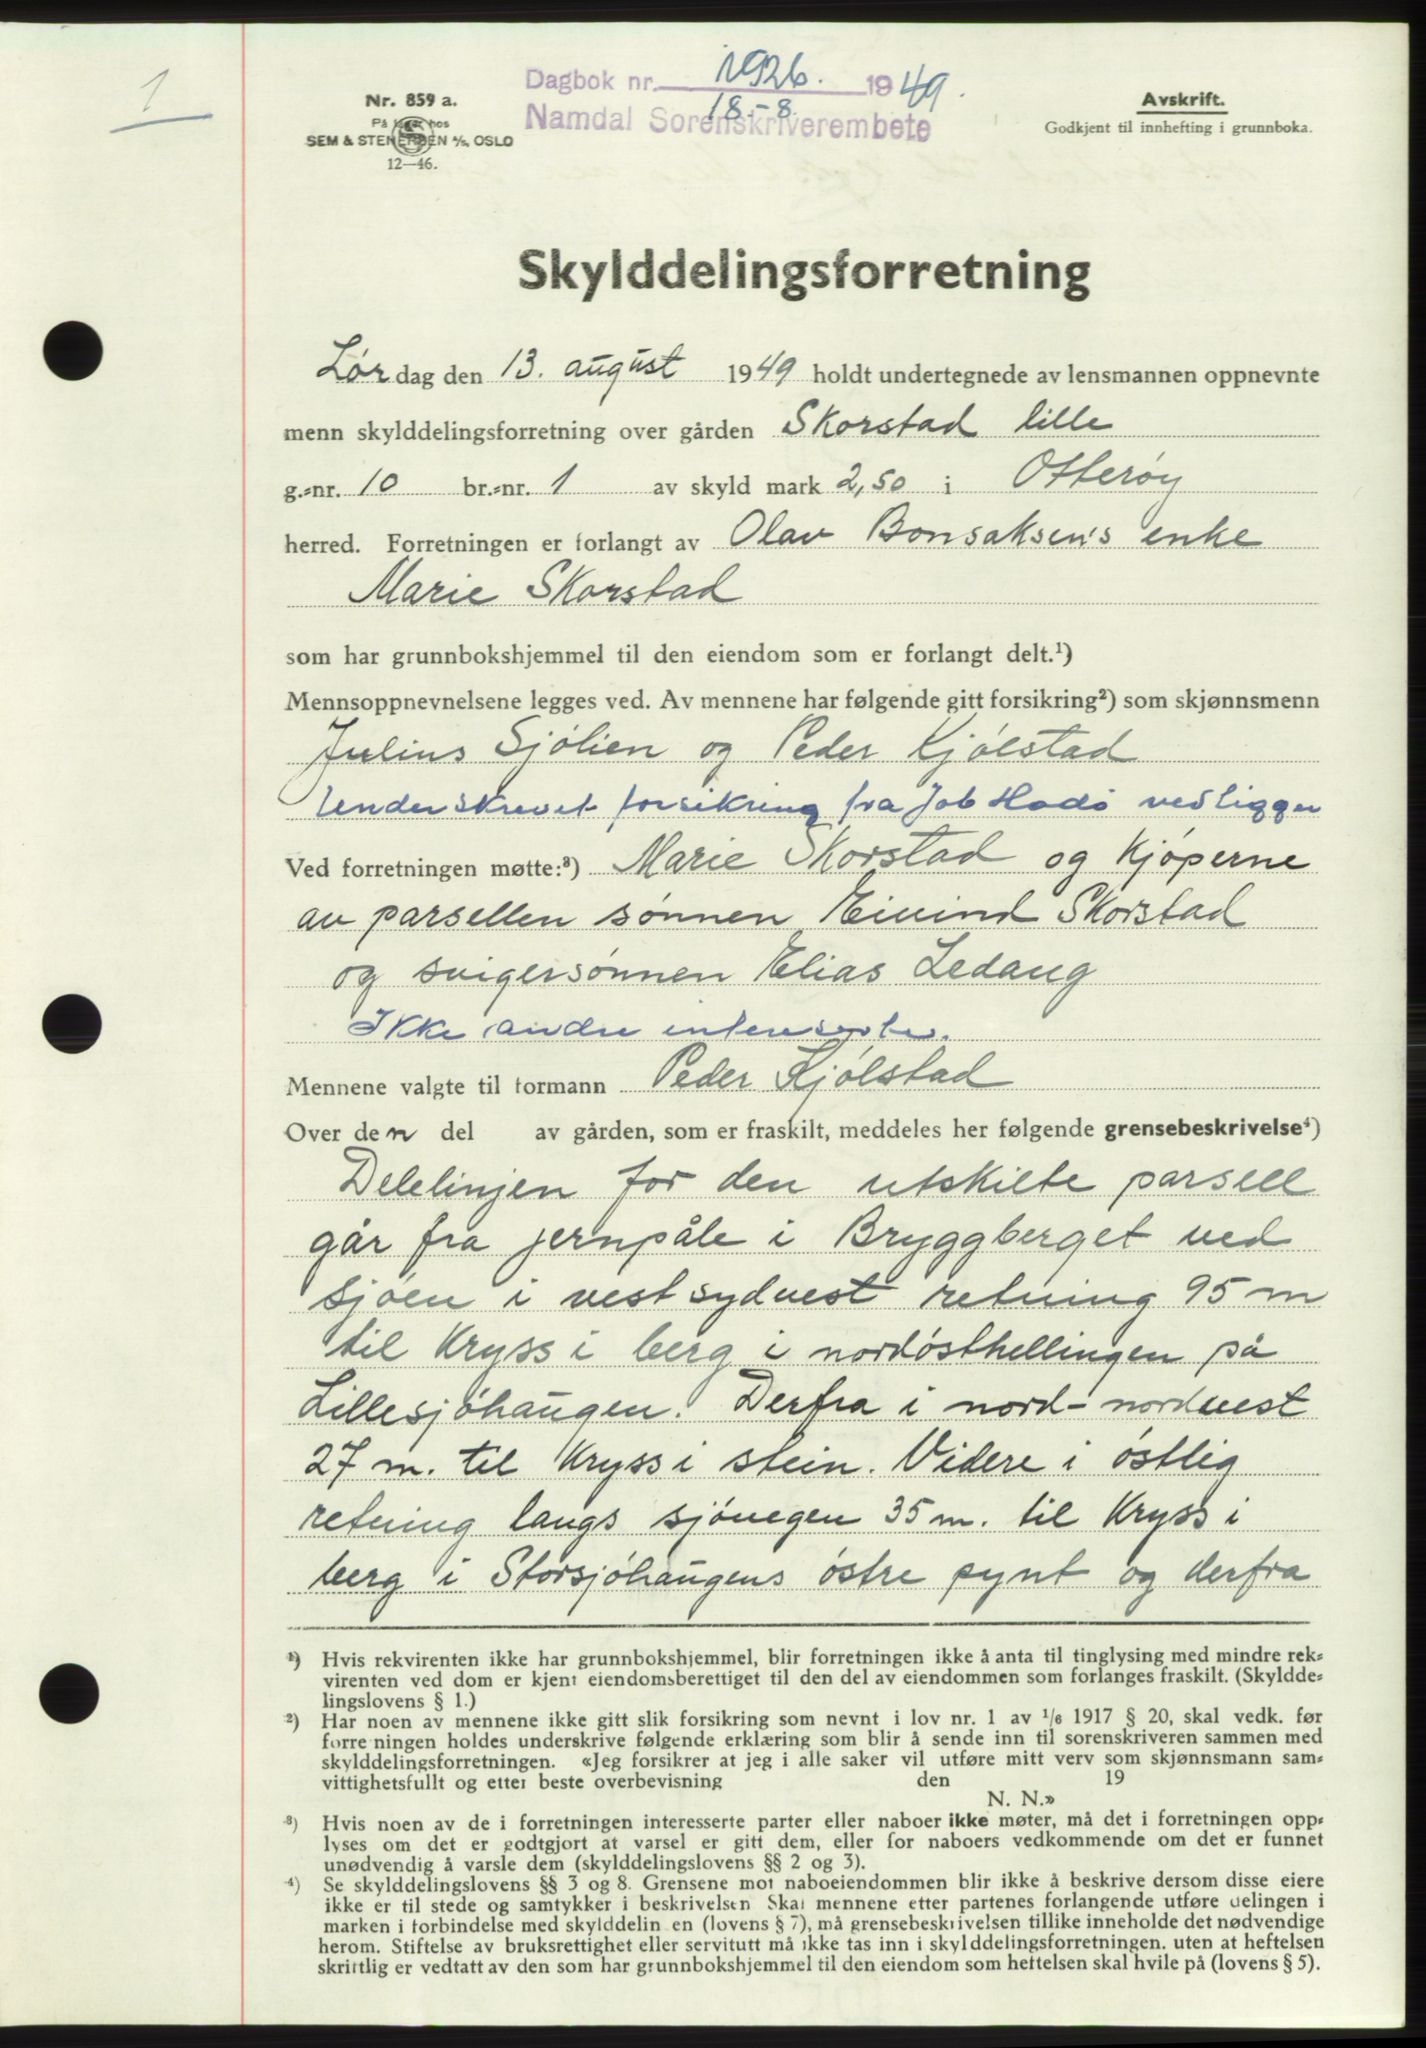 1
Dagbok nr. 1926. 1949.
18-8
Namdal Sorenskriverembete
Nr. 859 a.
SEM & STENERSEN A/S, OSLO
12—46.
Avskrift.
Godkjent til innhefting i grunnboka.
Skylddelingsforretning
Lørdag den 13. august 1949 holdt undertegnede av lensmannen oppnevnte
menn skylddelingsforretning over gården Skorstad lille
g.=nr. 10 br.=nr. 1 av skyld mark 2,50 i Otterøy
herred. Forretningen er forlangt av Olav Bonsaksen's enke
Marie Skorstad
som har grunnbokshjemmel til den eiendom som er forlangt delt.¹)
Mennsoppnevnelsene legges ved. Av mennene har følgende gitt forsikring²) som skjønnsmenn
Julius Sjölien og Peder Kjölstad
Underskrevet forsikring fra Job Hodö vedligger
Ved forretningen møtte:³) Marie Skorstad og Kjöperne
av parsellen sønnen Eivind Skorstad
og svigersønnen Elias Ledang
Ikke andre interesserte.
Mennene valgte til formann Peder Kjölstad
Over den del av gården, som er fraskilt, meddeles her følgende grensebeskrivelse⁴)
Delelinjen for den utskilte parsell
går fra jernpåle i Bryggberget ved
sjöen i vestsydvest retning 95 m
til Kryss i berg i nordösthellingen på
Lillesjöhaugen. Derfra i nord-nordvest
27 m. til Kryss i stein. Videre i östlig
retning langs sjövegen 35 m. til Kryss i
berg i Storsjöhaugens östre pynt og derfra
¹) Hvis rekvirenten ikke har grunnbokshjemmel, blir forretningen ikke å anta til tinglysing med mindre rek=
virenten ved dom er kjent eiendomsberettiget til den del av eiendommen som forlanges fraskilt. (Skyldde=
lingslovens § 1.)
²) Har noen av mennene ikke gitt slik forsikring som nevnt i lov nr. 1 av 1/6 1917 § 20, skal vedk. før
forre ningen holdes underskrive følgende erklæring som blir å sende inn til sorenskriveren sammen med
skylddelingsforretningen. «Jeg forsikrer at jeg i alle saker vil utføre mitt verv som skjønnsmann sam=
vittighetsfullt og etter beste overbevisning den 19
N. N.»
³) Hvis noen av de i forretningen interesserte parter eller naboer ikke møter, må det i forretningen opp=
lyses om det er godtgjort at varsel er gitt dem, eller for naboers vedkommende om det er funnet
unødvendig å varsle dem (skylddelingslovens §§ 2 og 3).
⁴) Se skylddelingslovens §§ 3 og 8. Grensene mot naboeiendommen blir ikke å beskrive dersom disse eiere
ikke er til stede og samtykker i beskrivelsen Skal mennene etter partenes forlangende utføre delingen i
marken i forbindelse med skylddelin en (lovens § 7), må grensebeskrivelsen tillike inneholde det nødvendige
herom. Stiftelse av bruksrettighet eller servitutt må ikke tas inn i skylddelingsforretningen. uten at heftelsen
skriftlig er vedtatt av den som har grunnbokshjemmel til den eiendom som heftelsen skal hvile på (lovens § 5).